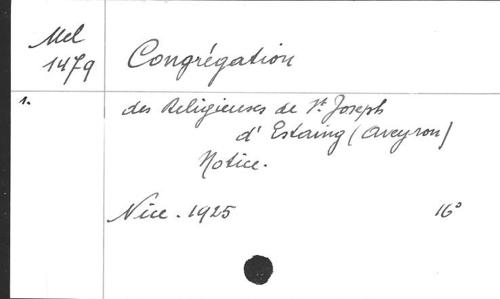 Mel
1479
Congrégation
1.
des Religieuses de St Joseph
d'Estaing (Aveyron)
Notice.
Nice. 1925
16°